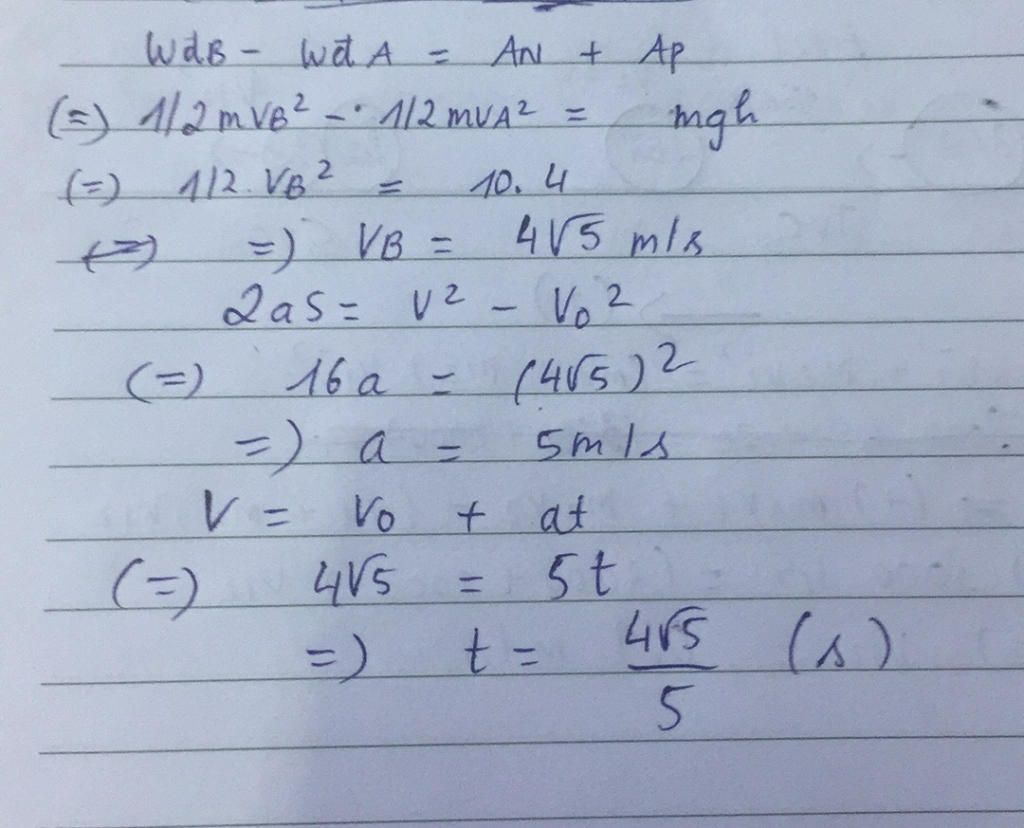 WdB - WđA = AN + Ap
(=) 1/2mVB² - 1/2mVA² = mgh
(=) 1/2.VB² = 10.4
=) VB = 4√5 m/s
2aS = V² - V₀²
(=) 16a = (4√5)²
=) a = 5m/s
V = V₀ + at
(=) 4√5 = 5t
=) t = 4√5/5 (s)